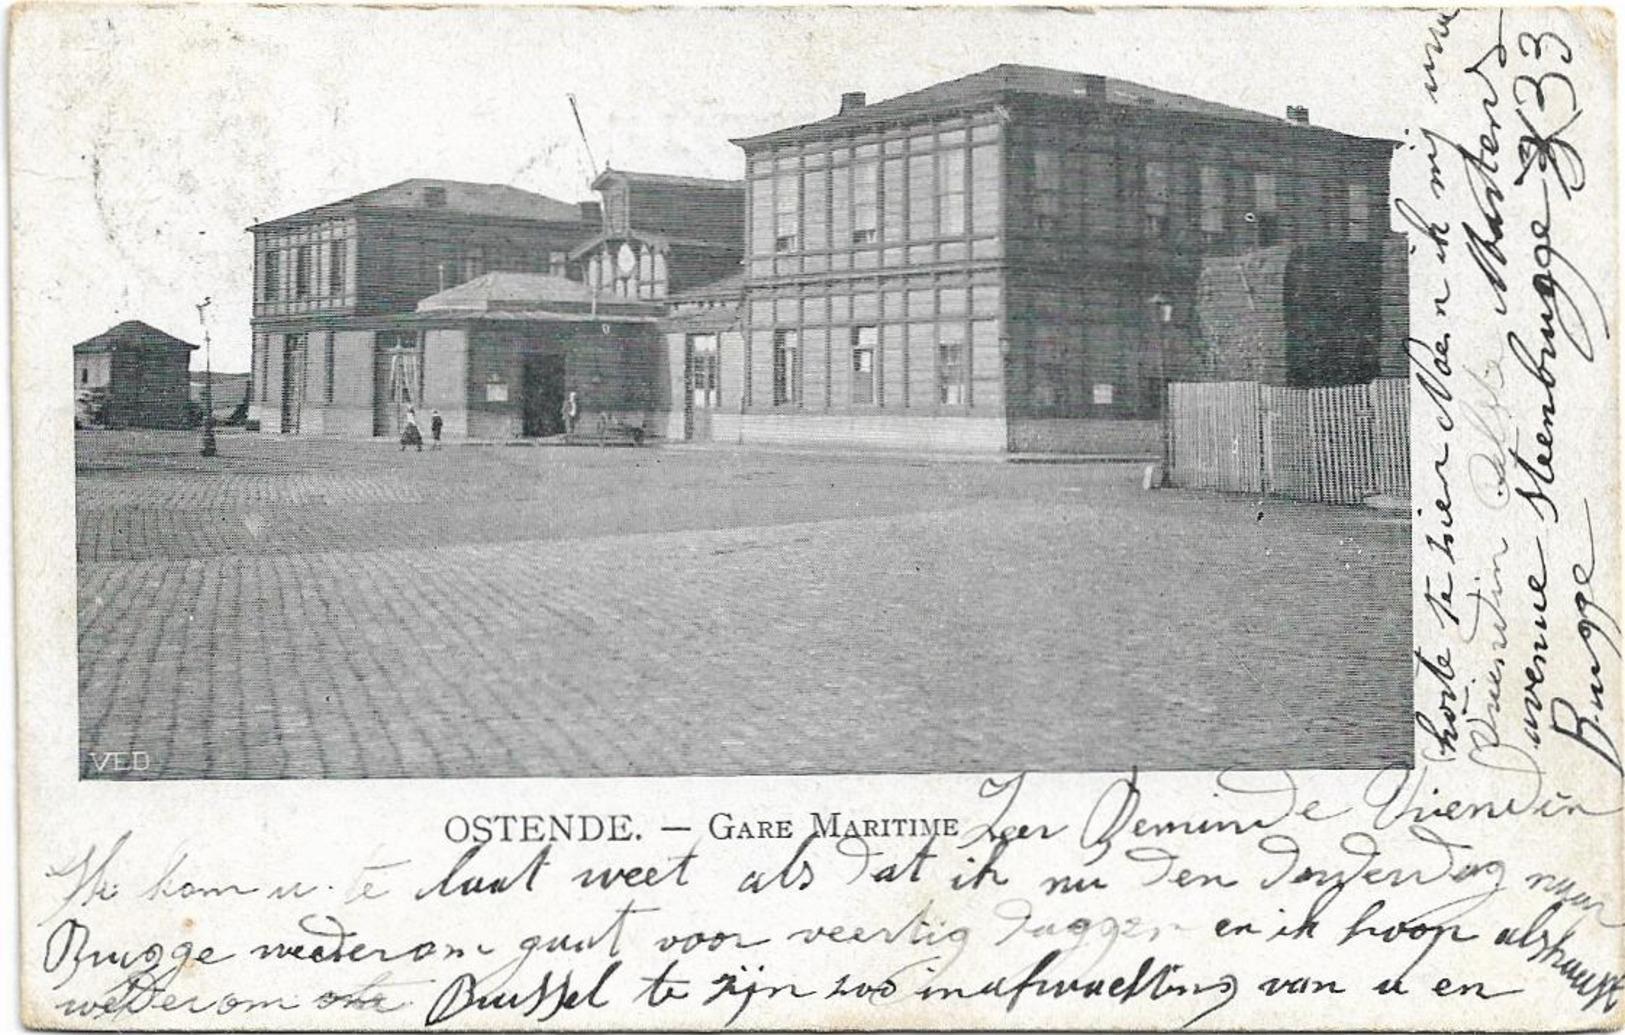 VED
OSTENDE. — GARE MARITIME
Zeer Beminde Vriendin
Ik kom u te laat weet als dat ik nu den donderdag naar
Brugge wederom gaat voor veertig daggen en ik hoop als
wederom Brussel te zijn zoo in afwachting van u en
te hier Noem ik mij uwe
Vriendin Masterd
avenue steenbrugge 33
Brugge